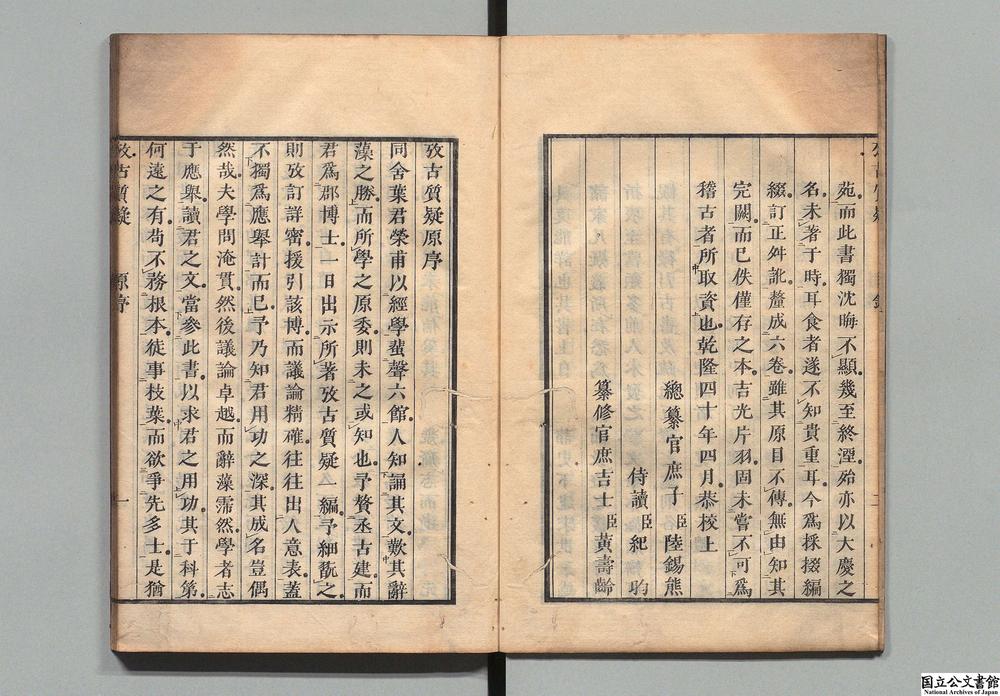 苑而此書獨沈晦不顯幾至終湮殆亦以大慶之
名未著于時耳食者遂不知貴重耳今爲採掇編
綴訂正舛訛釐成六卷雖其原目不傳無由知其
完闕而已佚僅存之本吉光片羽固未嘗不可爲
稽古者所取資也乾隆四十年四月恭校上
總纂官庶子臣陸錫熊
侍讀臣紀昀
纂修官庶吉士臣黃壽齡
攷古質疑原序
同舍葉君榮甫以經學蜚聲六館人知誦其文歎其辭
藻之勝而所學之原委則未之或知也予贅丞古建而
君爲郡博士一日出示所著攷古質疑一編予細翫之
則攷訂詳密援引該博而議論精確往往出人意表蓋
不獨爲應舉計而已予乃知君用功之深其成名豈偶
然哉夫學問淹貫然後議論卓越而辭藻霈然學者志
于應舉讀君之文當參此書以求君之用功其于科第
何遠之有苟不務根本徒事枝葉而欲爭先多士是猶
攷古質疑 原序 一
国立公文書館
National Archives of Japan